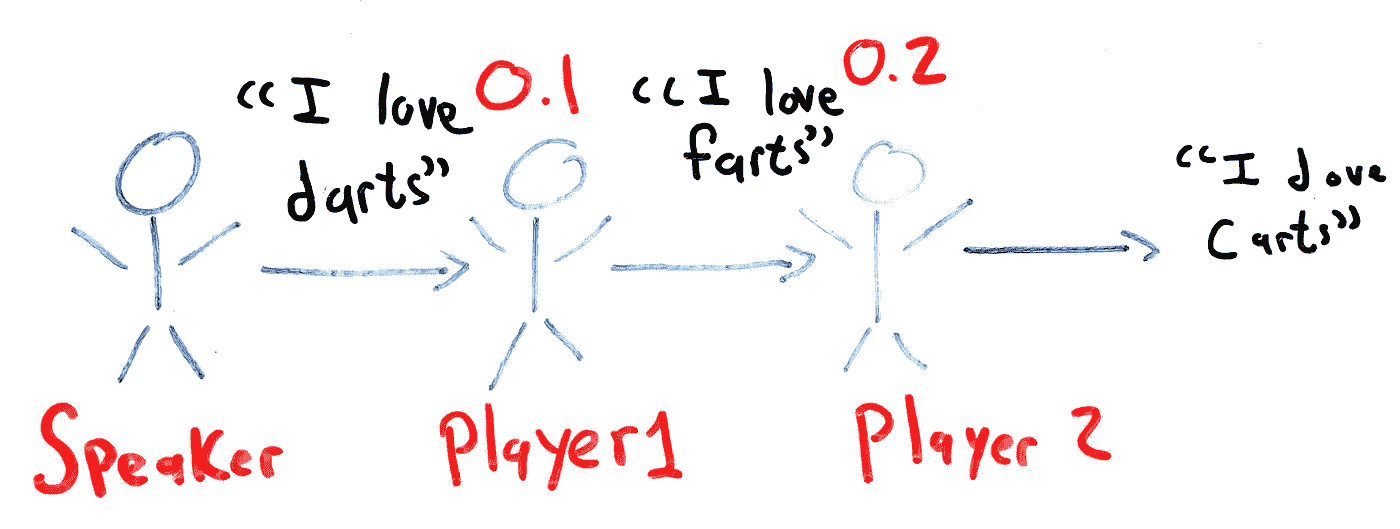 “I love
darts”
0.1
“I love
farts”
0.2
“I dove
Carts”
Speaker
Player1
Player 2